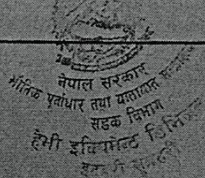 नेपाल सरकार
भौतिक पूर्वाधार तथा यातायात
सडक विभाग
हेभी इक्विपमेन्ट डिभिजन